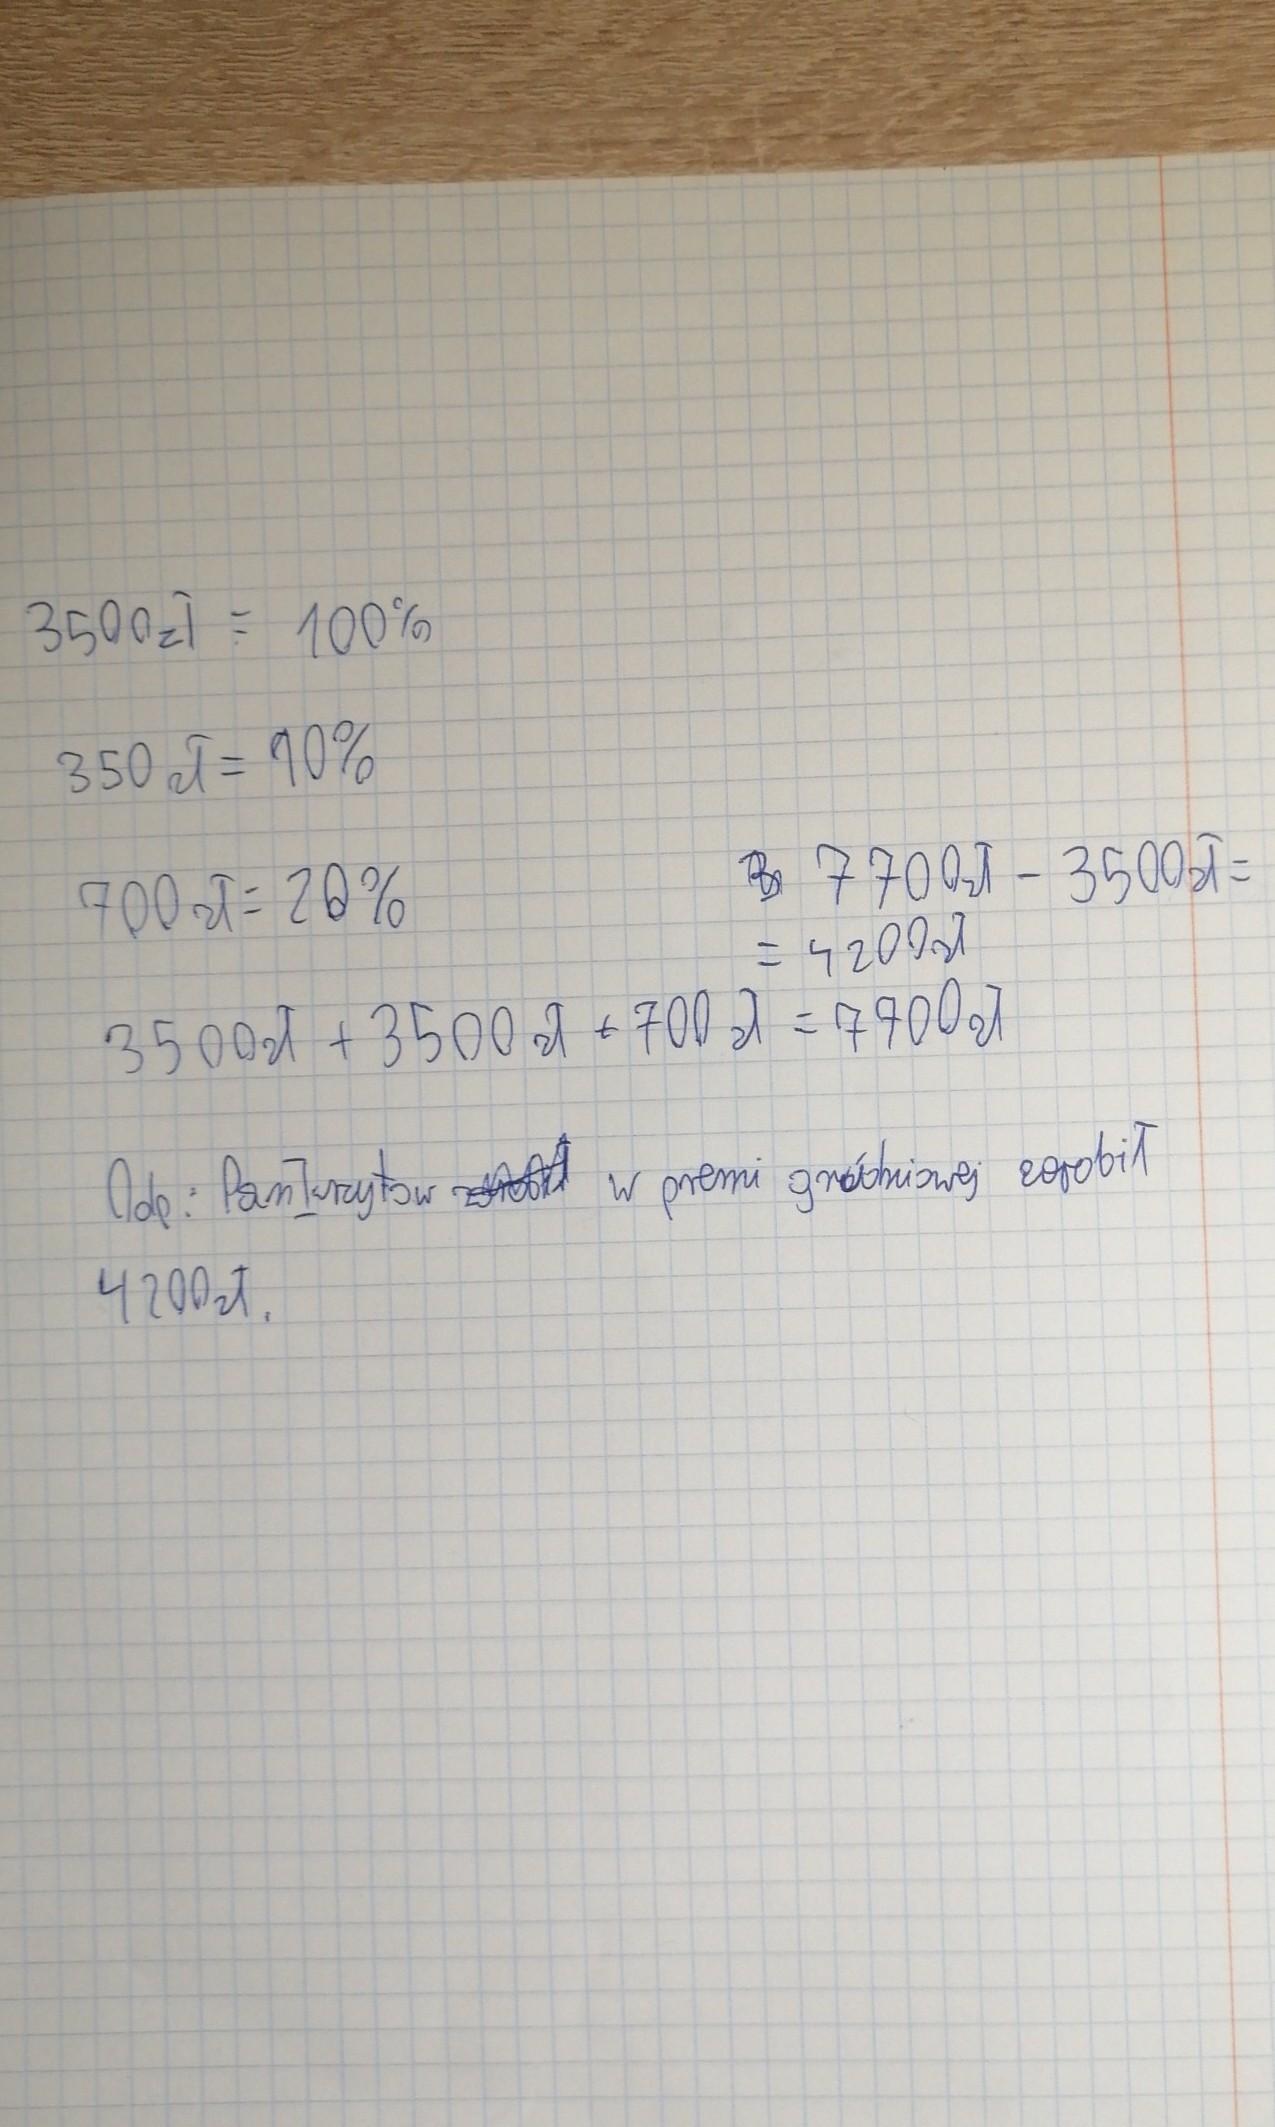 3500zł = 100%
350 zł = 10%
700 zł = 20%
7700zł - 3500zł =
= 4200zł
3500zł + 3500zł + 700 zł = 7700zł
Odp.: Pan w premi grudniowej zarobił
4200zł.